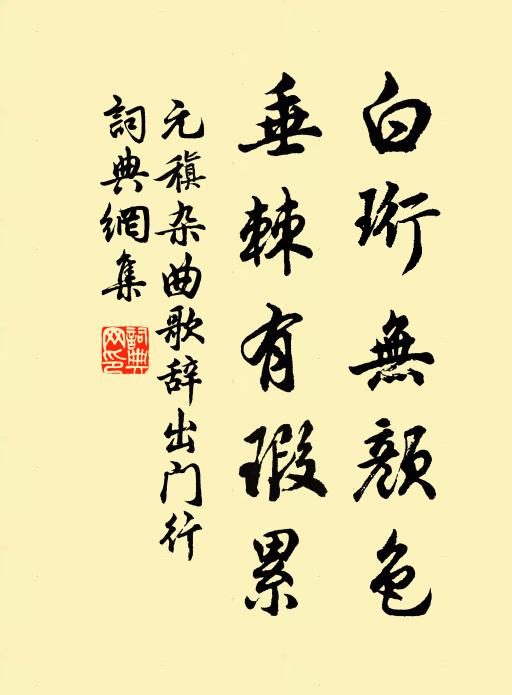 白珩無顔色
垂棘有瑕累
元稹杂曲歌辞出门行
詞典網集
詞典
网印